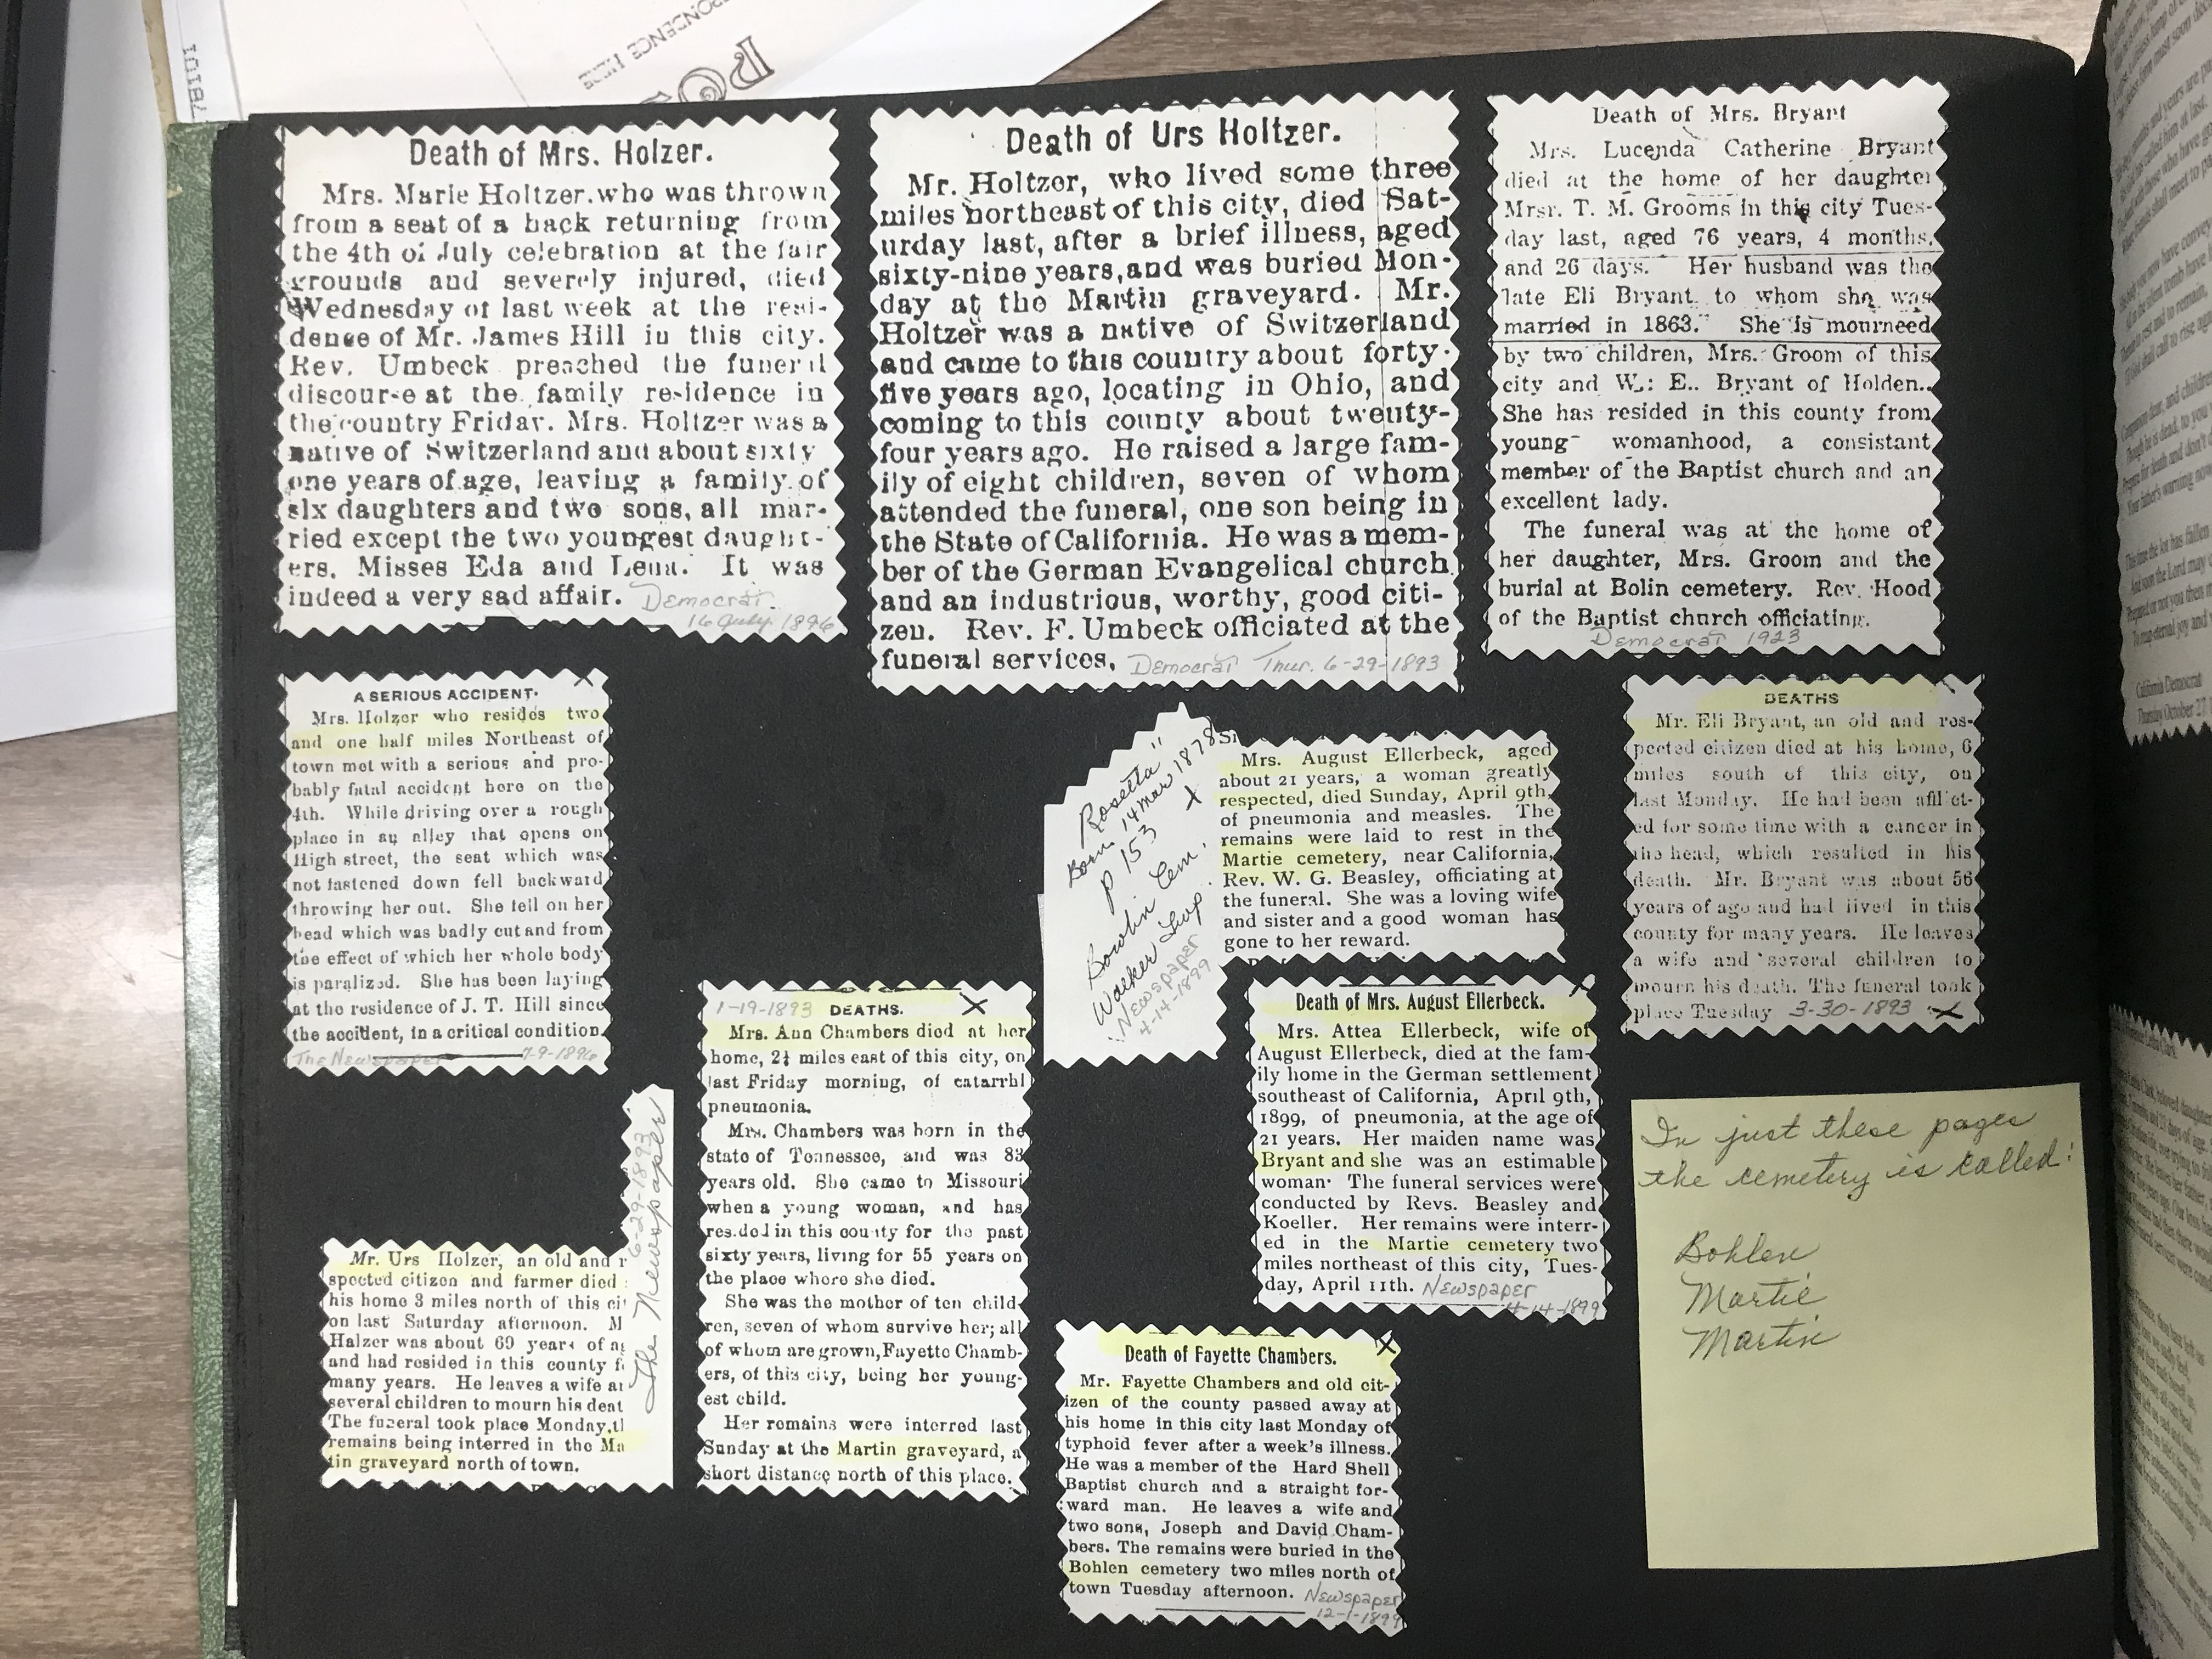 10187
PONDENCE HERE
Death of Mrs. Holzer.
Mrs. Marie Holtzer.who was thrown
from a seat of a hack returning from
the 4th of July celebration at the fair
grounds and severely injured, died
Wednesday of last week at the resi-
dence of Mr. James Hill in this city.
Rev. Umbeck preached the funeral
discourse at the family residence in
the country Friday. Mrs. Holtzer was a
native of Switzerland and about sixty
one years of age, leaving a family of
six daughters and two sons, all mar-
ried except the two youngest daught-
ers, Misses Eda and Lena. It was
indeed a very sad affair. Democrat.
16 July 1896
Death of Urs Holtzer.
Mr. Holtzer, who lived some three
miles northeast of this city, died Sat-
urday last, after a brief illness, aged
sixty-nine years,and was buried Mon-
day at the Martin graveyard. Mr.
Holtzer was a native of Switzerland
and came to this country about forty-
five years ago, locating in Ohio, and
coming to this county about twenty-
four years ago. He raised a large fam-
ily of eight children, seven of whom
attended the funeral, one son being in
the State of California. He was a mem-
ber of the German Evangelical church
and an industrious, worthy, good citi-
zen. Rev. F. Umbeck officiated at the
funeral services. Democrat Thur. 6-29-1893
Death of Mrs. Bryant
Mrs. Lucenda Catherine Bryant
died at the home of her daughter
Mrsr. T. M. Grooms in this city Tues-
day last, aged 76 years, 4 months,
and 26 days. Her husband was the
late Eli Bryant to whom she was
married in 1863. She is mourneed
by two children, Mrs. Groom of this
city and W. E. Bryant of Holden.
She has resided in this county from
young womanhood, a consistant
member of the Baptist church and an
excellent lady.
The funeral was at the home of
her daughter, Mrs. Groom and the
burial at Bolin cemetery. Rev. Hood
of the Baptist church officiating.
Democrat 1923
A SERIOUS ACCIDENT.
Mrs. Holzer who resides two
and one half miles Northeast of
town met with a serious and pro-
bably fatal accident here on the
4th. While driving over a rough
place in an alley that opens on
High street, the seat which was
not fastened down fell backward
throwing her out. She fell on her
head which was badly cut and from
the effect of which her whole body
is paralized. She has been laying
at the residence of J. T. Hill since
the accident, in a critical condition.
The Newspaper 7-9-1896
"Rosetta"
Born 14 Mar 1878
p 153 X
Bowlin Cem.
Walker Twp.
Newspaper
4-14-1899
Mrs. August Ellerbeck, aged
about 21 years, a woman greatly
respected, died Sunday, April 9th,
of pneumonia and measles. The
remains were laid to rest in the
Martie cemetery, near California,
Rev. W. G. Beasley, officiating at
the funeral. She was a loving wife
and sister and a good woman has
gone to her reward.
DEATHS
Mr. Eli Bryant, an old and res-
pected citizen died at his home, 6
miles south of this city, on
last Monday. He had been afflict-
ed for some time with a cancer in
the head, which resulted in his
death. Mr. Bryant was about 56
years of age and had lived in this
county for many years. He leaves
a wife and several children to
mourn his death. The funeral took
place Tuesday 3-30-1893 X
1-19-1893 DEATHS. X
Mrs. Ann Chambers died at her
home, 2½ miles east of this city, on
last Friday morning, of catarrhl
pneumonia.
Mrs. Chambers was born in the
state of Tennessee, and was 83
years old. She came to Missouri
when a young woman, and has
resided in this county for the past
sixty years, living for 55 years on
the place where she died.
She was the mother of ten child-
ren, seven of whom survive her; all
of whom are grown, Fayette Chamb-
ers, of this city, being her young-
est child.
Her remains were interred last
Sunday at the Martin graveyard, a
short distance north of this place.
Death of Mrs. August Ellerbeck.
Mrs. Attea Ellerbeck, wife of
August Ellerbeck, died at the fam-
ily home in the German settlement
southeast of California, April 9th,
1899, of pneumonia, at the age of
21 years. Her maiden name was
Bryant and she was an estimable
woman. The funeral services were
conducted by Revs. Beasley and
Koeller. Her remains were interr-
ed in the Martie cemetery two
miles northeast of this city, Tues-
day, April 11th. Newspaper
4-14-1899
6-29-1893
The Newspaper
Mr. Urs Holzer, an old and r
spected citizen and farmer died
his home 3 miles north of this ci
on last Saturday afternoon. M
Halzer was about 69 years of ag
and had resided in this county f
many years. He leaves a wife an
several children to mourn his deat
The funeral took place Monday, tl
remains being interred in the Ma
tin graveyard north of town.
Death of Fayette Chambers. X
Mr. Fayette Chambers and old cit-
izen of the county passed away at
his home in this city last Monday of
typhoid fever after a week's illness.
He was a member of the Hard Shell
Baptist church and a straight for-
ward man. He leaves a wife and
two sons, Joseph and David Cham-
bers. The remains were buried in the
Bohlen cemetery two miles north of
town Tuesday afternoon. Newspaper
12-1-1899
In just these pages
the cemetery is called:
Bohlen
Martie
Martin
California Democrat
Thursday October 27